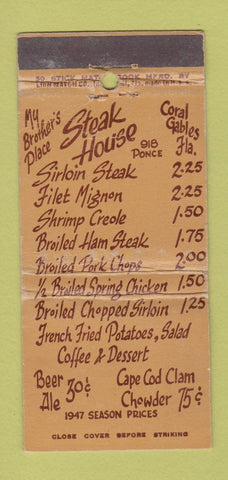 50 STICK MATCH BOOK MFRD. BY
LION MATCH CO.
My Brother's Place
Steak House
918 PONCE
Coral Gables Fla.
Sirloin Steak 2.25
Filet Mignon 2.25
Shrimp Creole 1.50
Broiled Ham Steak 1.75
Broiled Pork Chops 2.00
1/2 Broiled Spring Chicken 1.50
Broiled Chopped Sirloin 1.25
French Fried Potatoes, Salad
Coffee & Dessert
Beer Ale 30¢
Cape Cod Clam Chowder 75¢
1947 SEASON PRICES
CLOSE COVER BEFORE STRIKING